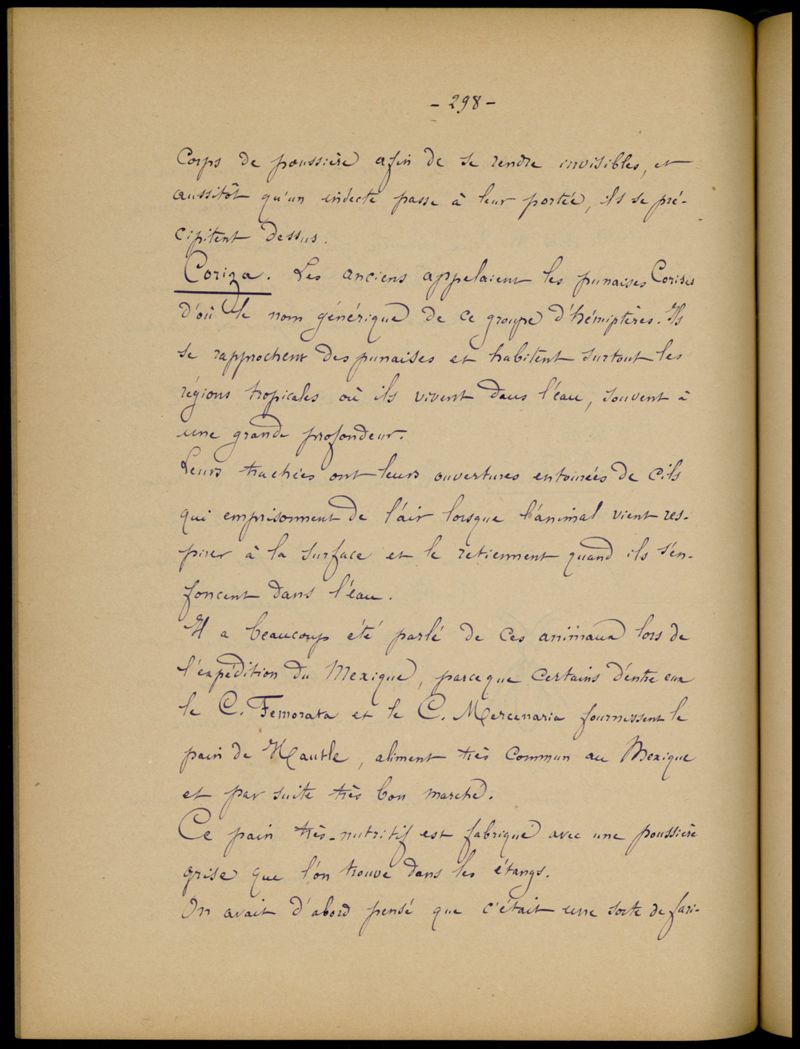 - 298 -
Corps de poussière afin de se rendre invisibles, et
aussitôt qu'un insecte passe à leur portée, ils se pré-
cipitent dessus.
Coriza. Les anciens appelaient les punaises Corises
d'où le nom générique de ce groupe d'hémiptères. Ils
se rapprochent des punaises et habitent surtout les
régions tropicales où ils vivent dans l'eau, souvent à
une grande profondeur.
Leurs trachées ont leurs ouvertures entourées de cils
qui emprisonnent de l'air lorsque l'animal vient res-
pirer à la surface et le retiennent quand ils s'en-
foncent dans l'eau.
Il a beaucoup été parlé de ces animaux lors de
l'expédition du Mexique, parce que certains d'entre eux
le C. Femorata et le C. Mercenaria fournissent le
pain de Hautle, aliment très commun au Mexique
et par suite très bon marché.
Ce pain très-nutritif est fabriqué avec une poussière
grise que l'on trouve dans les étangs.
On avait d'abord pensé que c'était une sorte de fari-